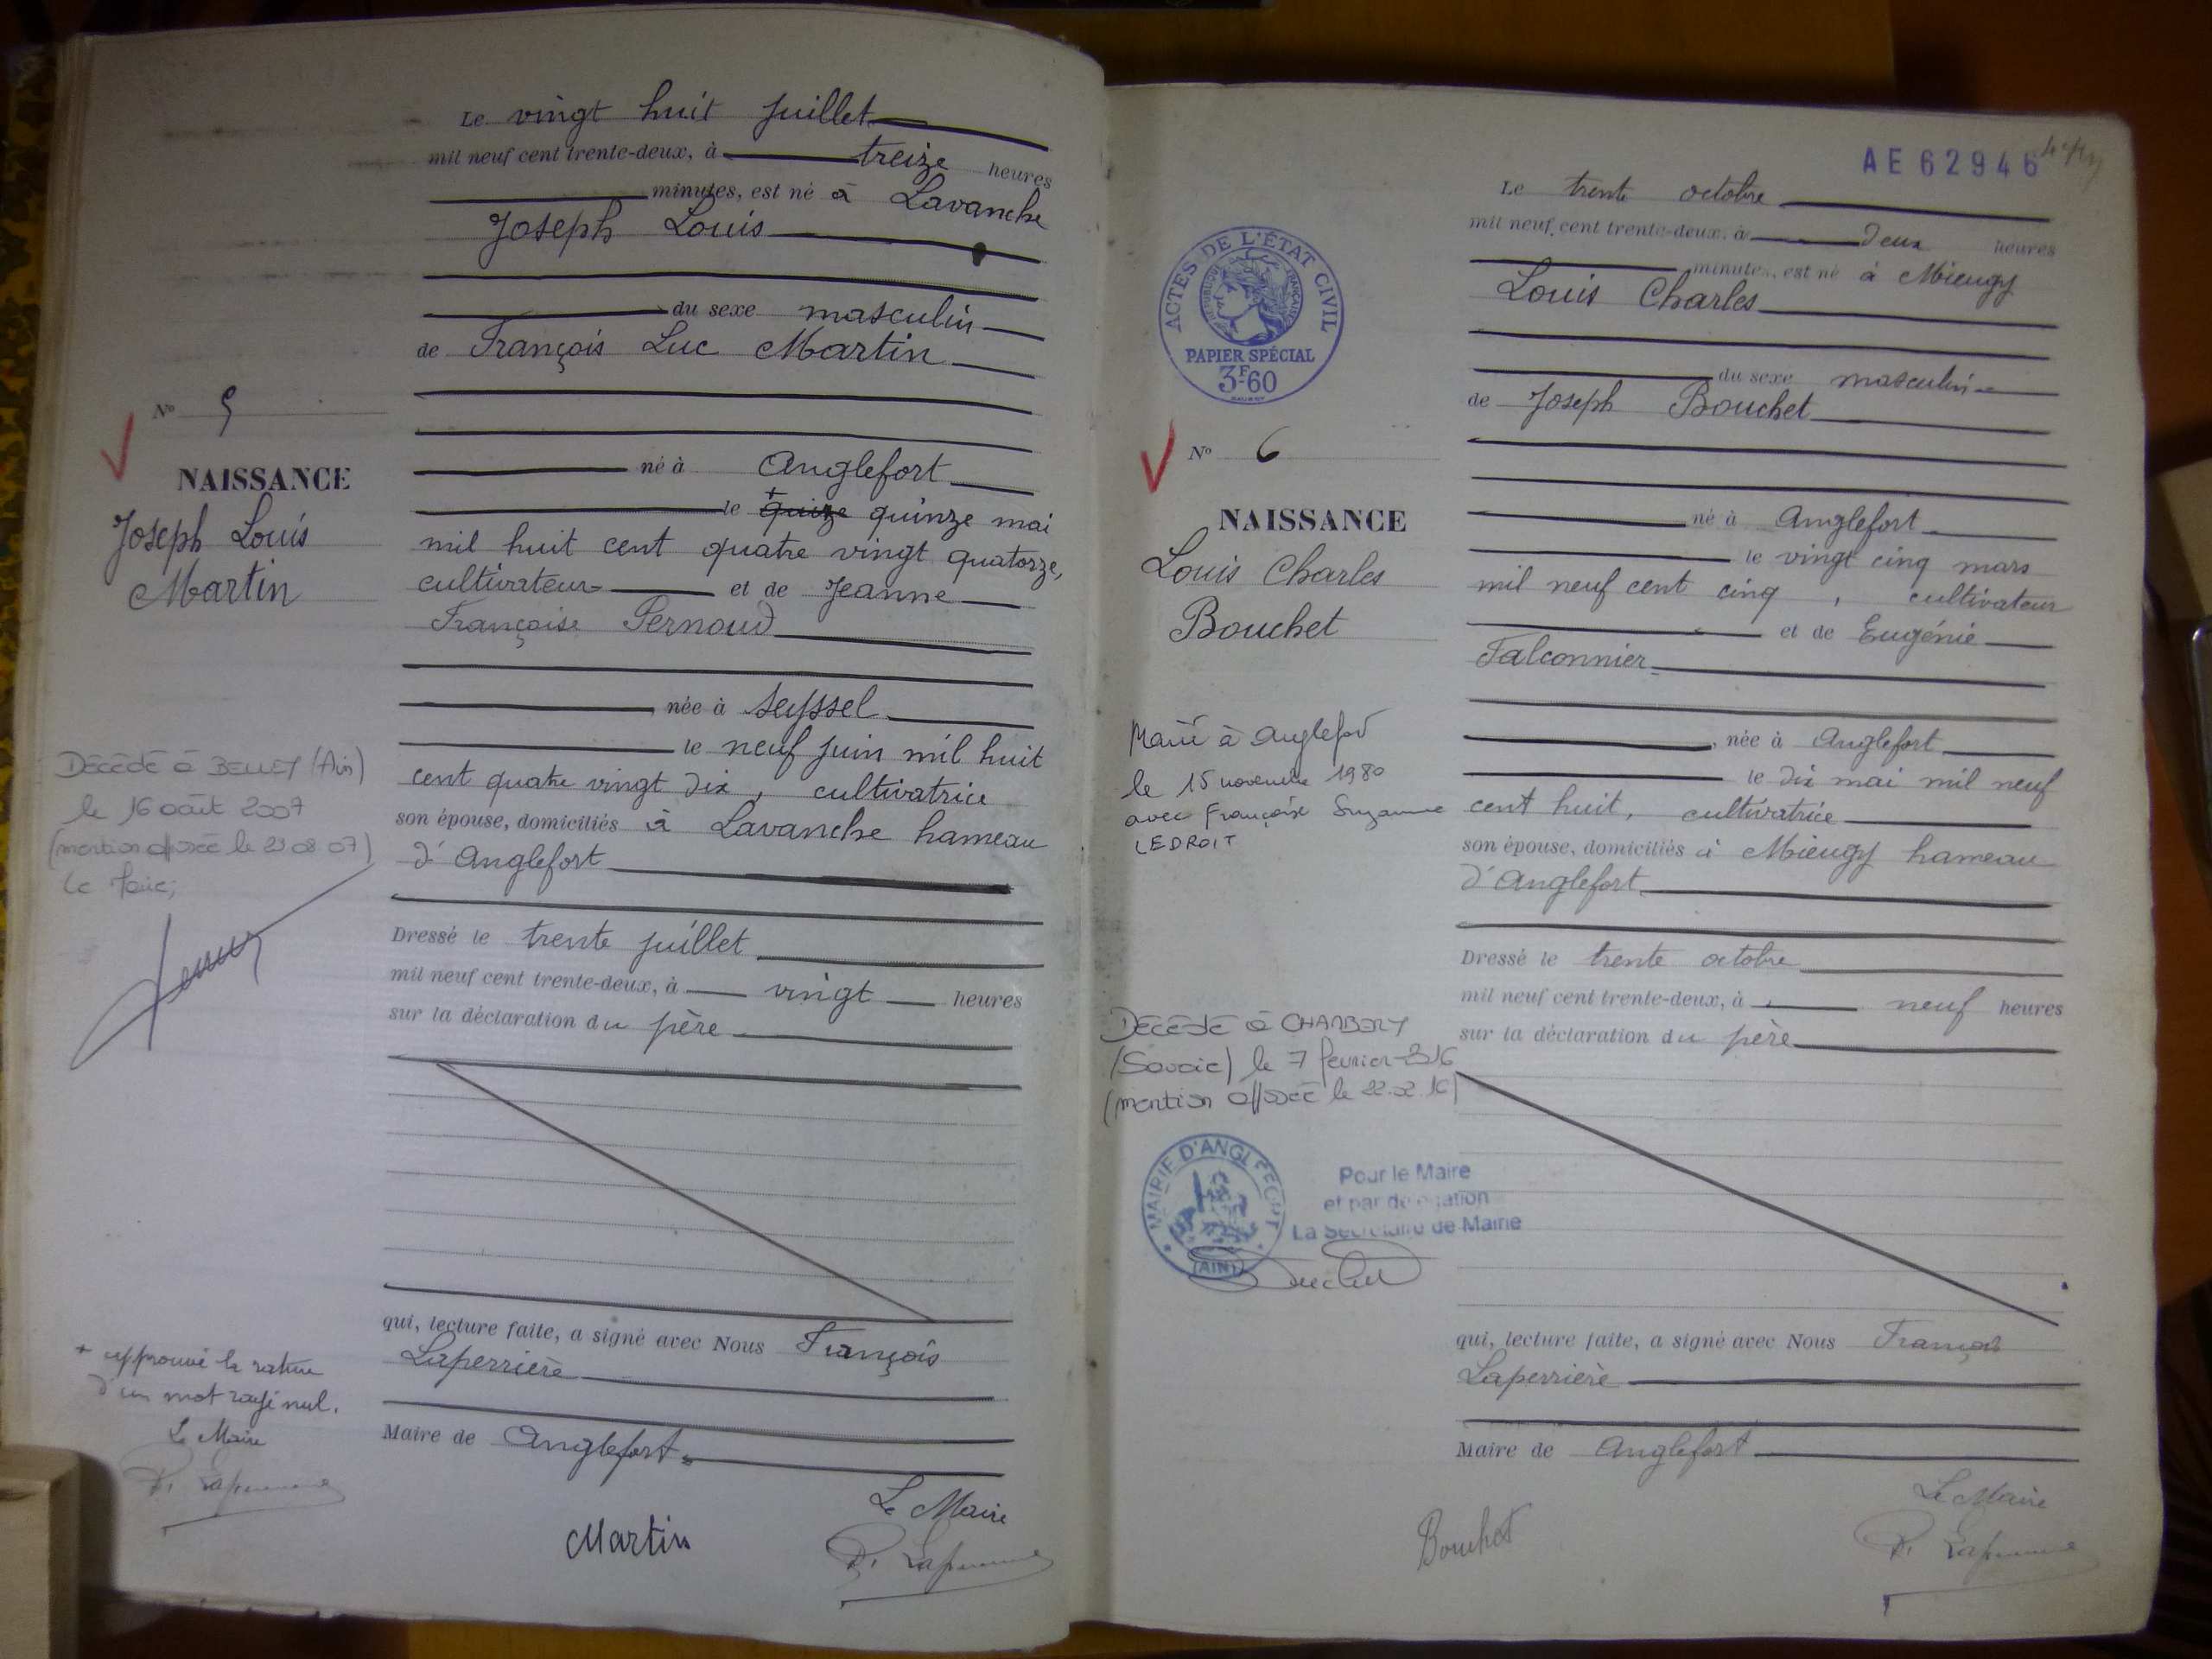 Le vingt huit juillet
mil neuf cent trente-deux, à treize heures
minutes, est né à Lavanche
Joseph Louis
du sexe masculin
de François Luc Martin
né à Anglefort
+
le quize quinze mai
mil huit cent quatre vingt quatorze,
cultivateur et de Jeanne
Françoise Pernoud
née à Seyssel
le neuf juin mil huit
cent quatre vingt dix, cultivatrice
son épouse, domiciliés à Lavanche hameau
d'Anglefort
Dressé le trente juillet
mil neuf cent trente-deux, à vingt heures
sur la déclaration du père
qui, lecture faite, a signé avec Nous François
Laperrière
Maire de Anglefort
Le Maire
Martin
N° 5
NAISSANCE
Joseph Louis
Martin
Décédé à BELLEY (Ain)
le 16 août 2007
(mention apposée le 23 08 07)
Le Maire,
+ approuvé la rature
d'un mot rayé nul.
Le Maire
AE 62946
Le trente octobre
mil neuf cent trente-deux, à deux heures
minutes, est né à Mieugy
Louis Charles
du sexe masculin
de Joseph Bouchet
né à Anglefort
le vingt cinq mars
mil neuf cent cinq, cultivateur
et de Eugénie
Falconnier
née à Anglefort
le dix mai mil neuf
cent huit, cultivatrice
son épouse, domiciliés à Mieugy hameau
d'Anglefort
Dressé le trente octobre
mil neuf cent trente-deux, à neuf heures
sur la déclaration du père
qui, lecture faite, a signé avec Nous François
Laperrière
Maire de Anglefort
Le Maire
Bouchet
ACTES DE L'ÉTAT CIVIL
RÉPUBLIQUE FRANÇAISE
PAPIER SPÉCIAL
3F60
N° 6
NAISSANCE
Louis Charles
Bouchet
Marié à Anglefort
le 15 novembre 1980
avec Françoise Suzanne
LEDROIT
Décédé à CHAMBERY
(Savoie) le 7 février 2016
(mention apposée le 22.02.16)
MAIRIE D'ANGLEFORT
(AIN)
Pour le Maire
et par délégation
La Secrétaire de Mairie